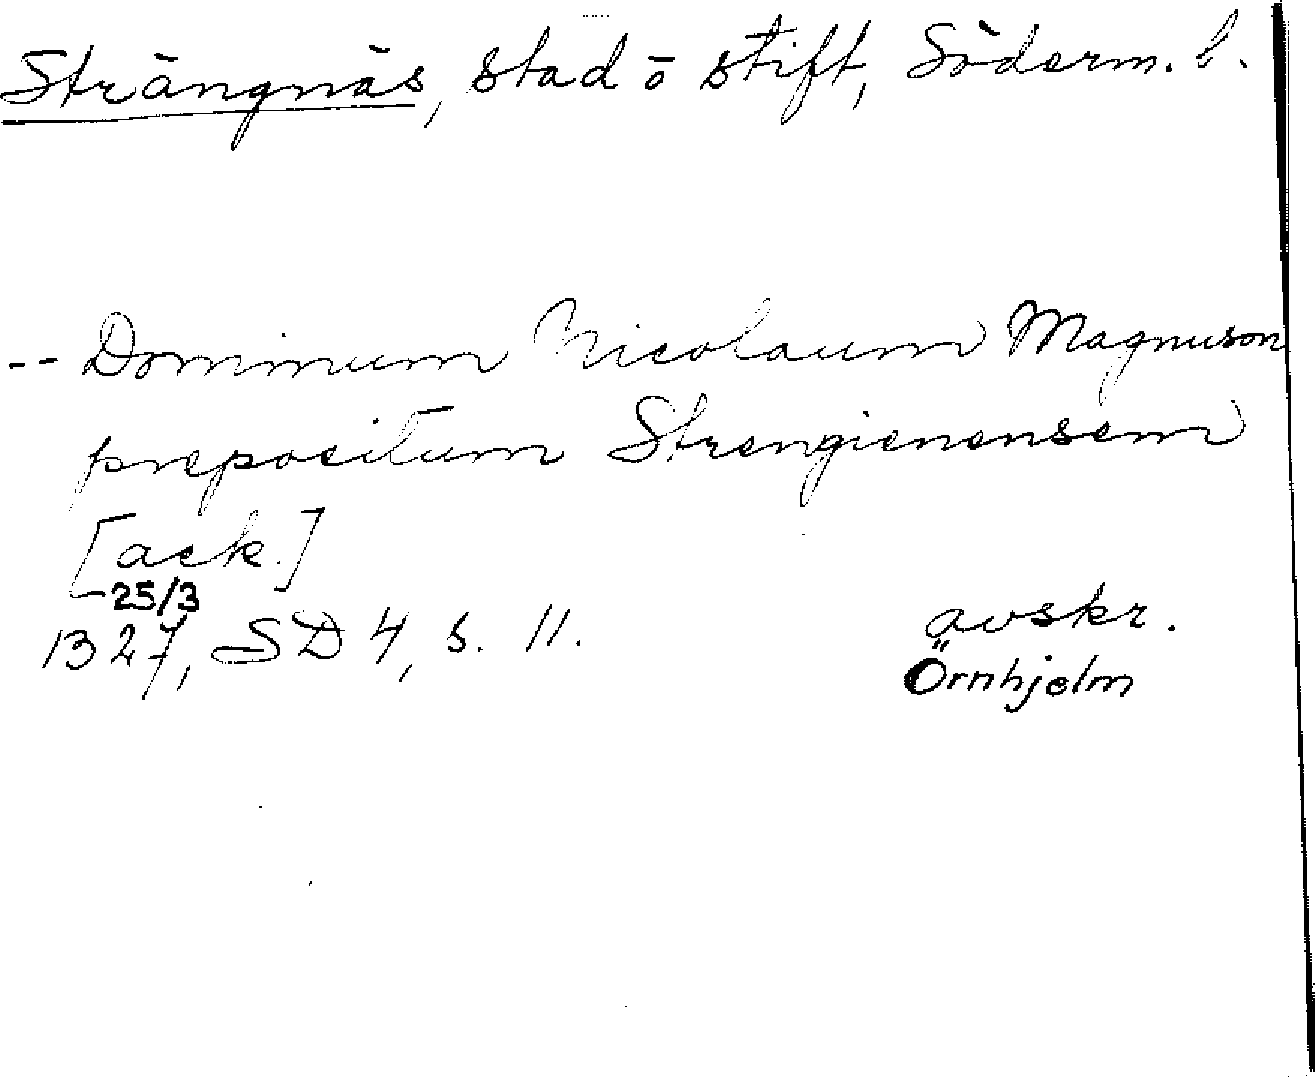 Strängnäs, stad ō stift, Söderm. l.
-- Dominum Nicolaum Magnuson
prepositum Strengienensem
[ack.]
-25/3
1327, SD 4, s. 11.
avskr.
Örnhjelm